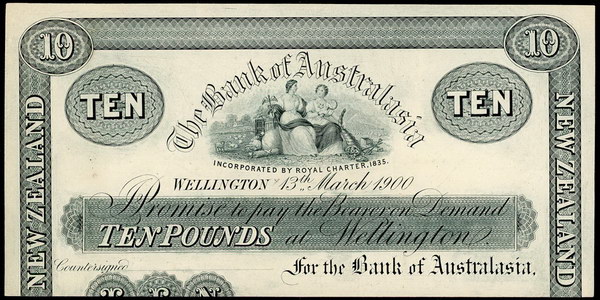 10 10
The Bank of Australasia
TEN TEN
INCORPORATED BY ROYAL CHARTER, 1835.
WELLINGTON 13th March 1900
I Promise to pay the Bearer on Demand
TEN POUNDS at Wellington
Countersigned For the Bank of Australasia.
NEW ZEALAND
NEW ZEALAND